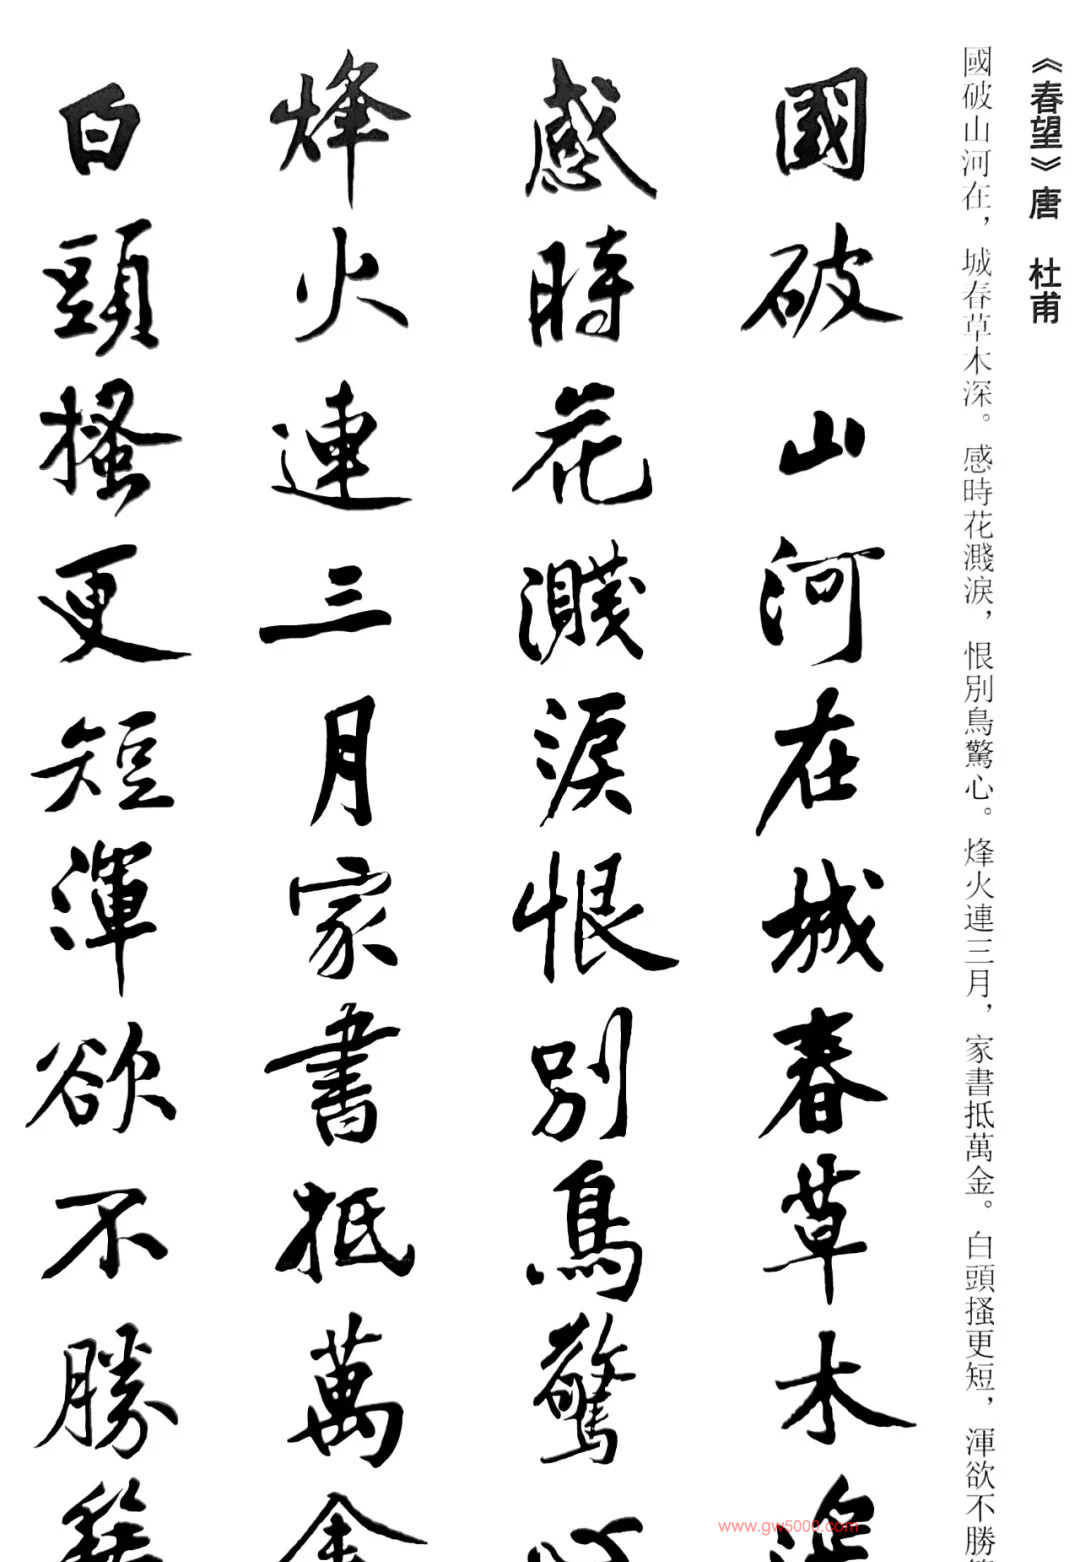 《春望》唐 杜甫
國破山河在，城春草木深。感時花濺淚，恨別鳥驚心。烽火連三月，家書抵萬金。白頭搔更短，渾欲不勝
國破山河在城春草木深
感時花濺淚恨別鳥驚心
烽火連三月家書抵萬金
白頭搔更短渾欲不勝
www.gw5000.com